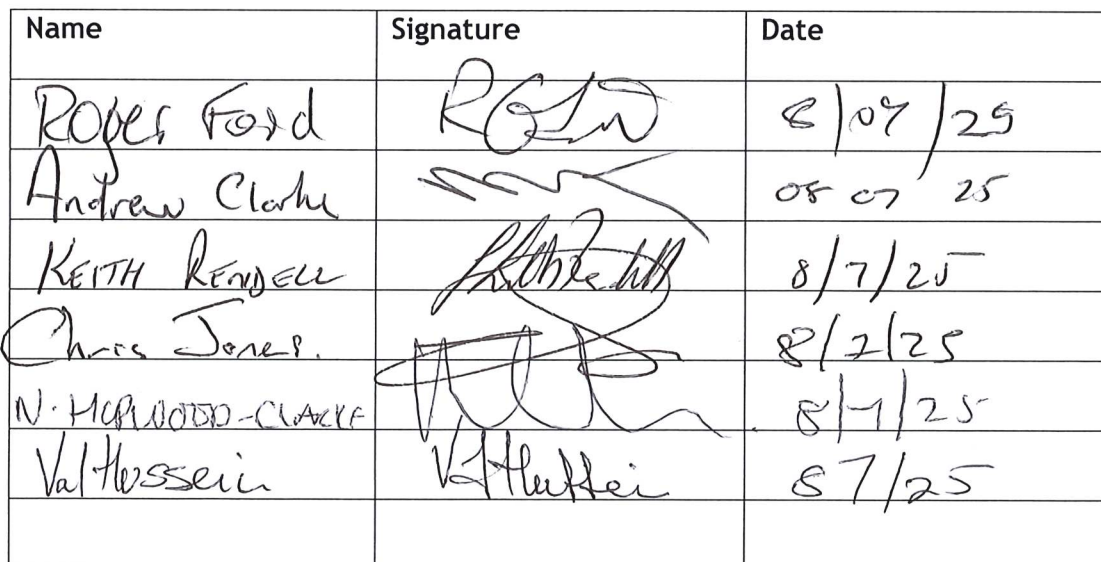 Name Signature Date
Roger Ford 8/07/25
Andrew Clarke 08 07 25
KEITH RENDELL 8/7/25
Chris Jones. 8/7/25
N. HOPWOOD-CLARKE 8/7/25
Val Hussein 8 7/25